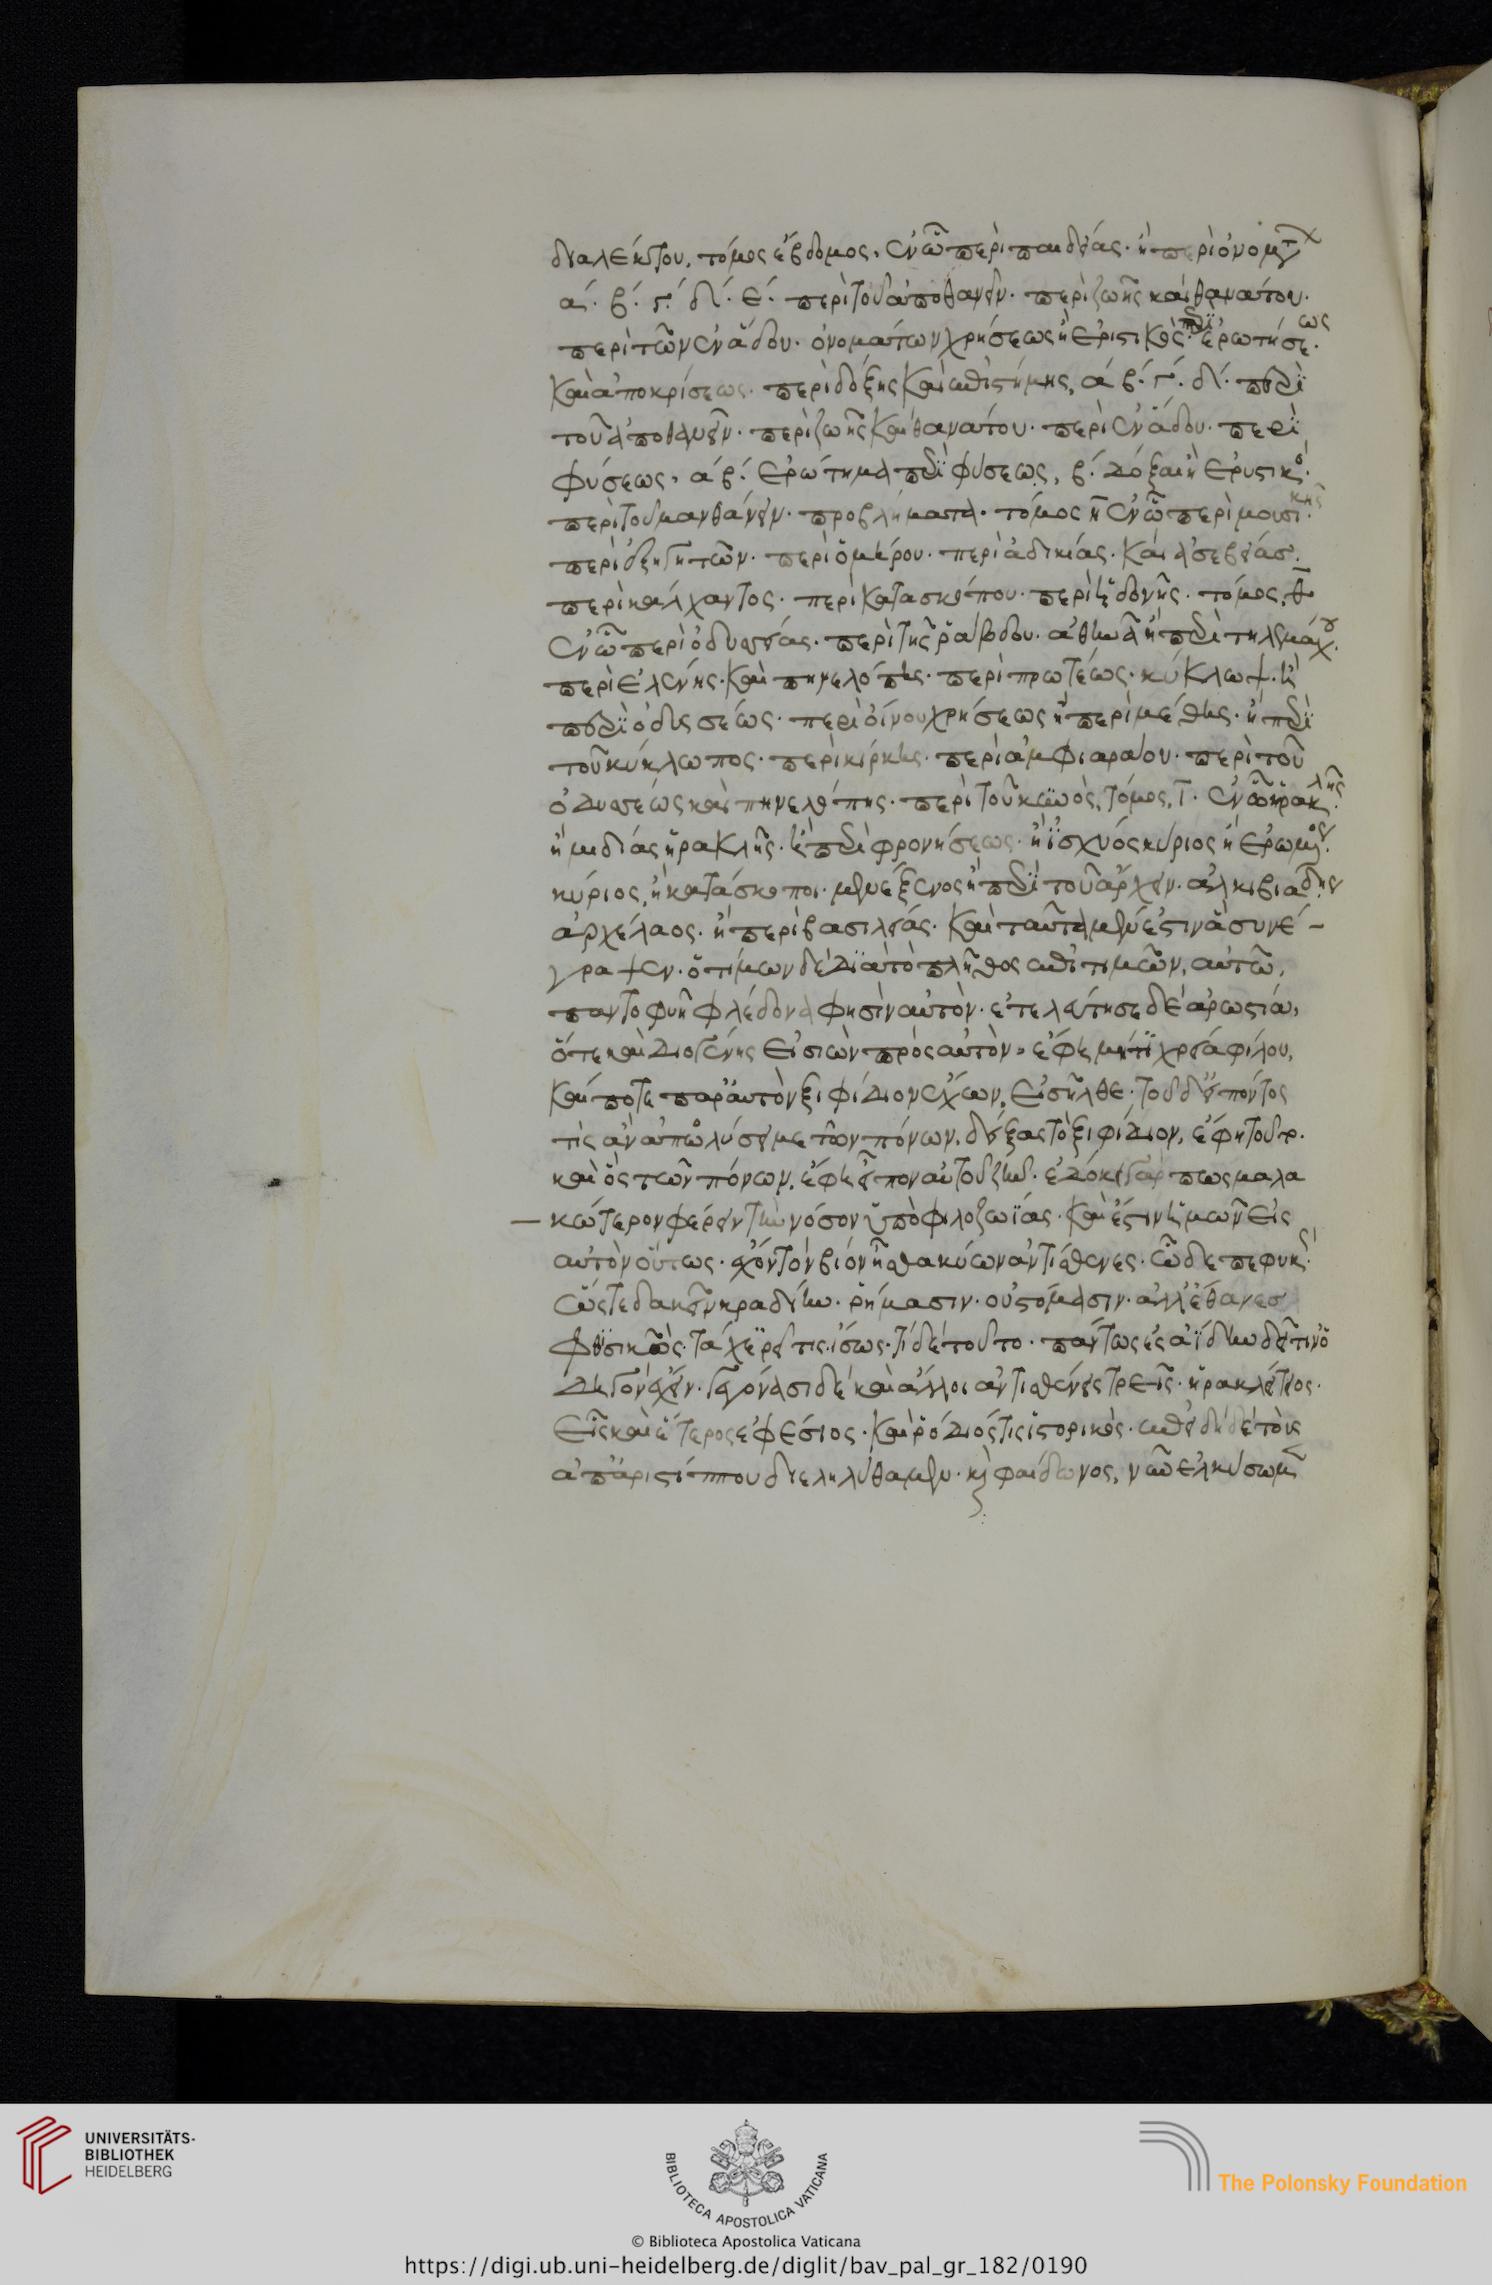 διαλέκτου. τόμος έβδομος. ἐν ὧ περὶ παιδείας. ἢ περὶ ὀνομάτ
ά. β. γ. δ. έ. περὶ τοῦ ἀποθανεῖν. περὶ ζωῆς καὶ θανάτου.
περὶ τῶν ἐν ἅδου. ὀνομάτων χρήσεως ἢ ἐριστικὸς. περὶ ἐρωτήσεως.
καὶ ἀποκρίσεως. περὶ δόξης καὶ ἐπιστήμης, ά. β. γ. δ. περὶ
τοῦ ἀποθανεῖν. περὶ ζωῆς καὶ θανάτου. περὶ ἐν ἅδου. περὶ
φύσεως. ά β. ἐρώτημα περὶ φύσεως, β. δόξαι ἢ ἐρυστικό.
περὶ τοῦ μανθάνειν. προβλήματα. τόμος η ἐν ὧ περὶ μουσικῆς.
περὶ ἐξηγητῶν. περὶ ὁμήρου. περὶ ἀδικίας. καὶ ἀσεβείας.
περὶ κάλχαντος. περὶ κατασκόπου. περὶ ἡδονῆς. τόμος, θ
ἐν ὧ περὶ ὀδυσσείας. περὶ τῆς ῥάβδου. ἀθηνᾶ ἢ περὶ τηλεμάχου.
περὶ ἑλένης. καὶ πηνελόπης. περὶ πρωτέως. κύκλωψ. ἢ
περὶ ὀδισσέως. περὶ οἴνου χρήσεως ἢ περὶ μέθης. ἢ περὶ
τοῦ κύκλωπος. περὶ κίρκης. περὶ ἀμφιαράου. περὶ τοῦ
ὀδυσσέως καὶ πηνελόπης. περὶ τοῦ κυνὸς, τόμος, ι. ἐν ὧ ἡρακλῆς.
ἢ μιδίας ἡρακλῆς. ἢ περὶ φρονήσεως. ἢ ἰσχυός κύριος ἢ ἐρώμενος.
κύριος, ἢ κατάσκοποι. μενέξενος ἢ περὶ τοῦ ἄρχειν. ἀλκιβιάδης
ἀρχέλαος. ἢ περὶ βασιλείας. καὶ ταῦτα μέν ἐστιν ἃ συνέ-
γραψεν. ὃ τίμων δὲ διὰ τὸ πλῆθος ἐπιτιμῶν, αὐτῶ,
παντοφυῆ φλέδονά φησὶν αὐτὸν. ἐτελεύτησε δὲ ἀρωστία,
ὅτε καὶ διογένης εἰσιὼν πρὸς αὐτὸν, ἔφη μήτι χρεία φίλου,
καί ποτε παρ' αὐτὸν ξιφίδιον ἔχων, εἰσῆλθε. τοῦ δ' εἰπόντος
τίς ἂν ἀπολύσειέ με τῶν πόνων. δείξας τὸ ξιφίδιον, ἔφη τοῦτο.
καὶ ὃς τῶν πόνων, ἔφη εἶπον οὐ τοῦ ζῆν. ἐδόκει γάρ πως μαλα
κώτερον φέρειν τὴν νόσον ὑπὸ φιλοζωΐας. καὶ ἔστιν ἡμῶν εἰς
αὐτὸν οὕτως. τὸν βίον ἦσθα κύων ἀντίσθενες. ὧδε πεφυκώς
ὥστε δακεῖν κραδίην. ῥήμασιν. οὐ στόμασιν. ἀλλ' ἔθανες
φθισικῶς. τάχ' ἐρεῖ τις. ἴσως. τί δὲ τοῦτο. πάντως ἐς ἀΐδην δεῖ τιν' ὁ
δηγὸν ἔχειν. γεγόνασι δὲ καὶ ἄλλοι ἀντισθένεις τρεῖς. ἡρακλείτειος.
εἷς καὶ ἕτερος ἐφέσιος. καὶ ῥόδιός τις ἱστορικός. ἐπειδὴ δὲ τοὺς
ἀπ' ἀριστίππου διεληλύθαμεν. κὶ φαίδωνος, νῦν ἑλκύσωμεν
UNIVERSITÄTS-
BIBLIOTHEK
HEIDELBERG
BIBLIOTECA APOSTOLICA VATICANA
© Biblioteca Apostolica Vaticana
The Polonsky Foundation
https://digi.ub.uni-heidelberg.de/diglit/bav_pal_gr_182/0190